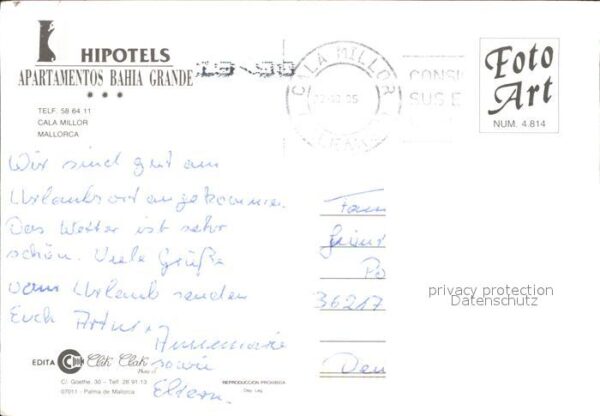 HIPOTELS
APARTAMENTOS BAHIA GRANDE
TELF. 58 64 11
CALA MILLOR
MALLORCA
CALA MILLOR
CONSI
SUS E
Foto
Art
NUM. 4.814
Wir sind gut am
Urlaubsort angekommen.
Das Wetter ist sehr
schön. Viele Grüße
vom Urlaub senden
Euch Artur,
Annemarie
sowie
Eltern.
Fam
Po
36217
privacy protection
Datenschutz
EDITA Clik Clak
C/. Goethe, 30 - Telf. 28 91 13
07011 - Palma de Mallorca
REPRODUCCION PROHIBIDA
Dep. Leg.